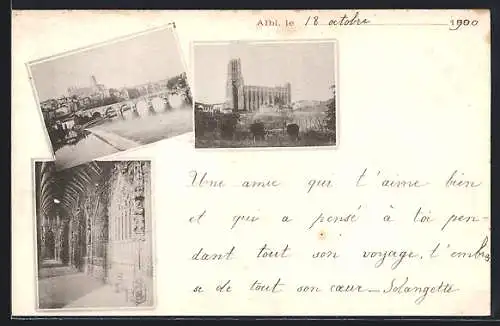 Albi, le 18 octobri 1900
Une amie qui t'aime bien
et qui a pensé à toi pen-
dant tout son voyage, t'embras
se de tout son cœur - Solangette